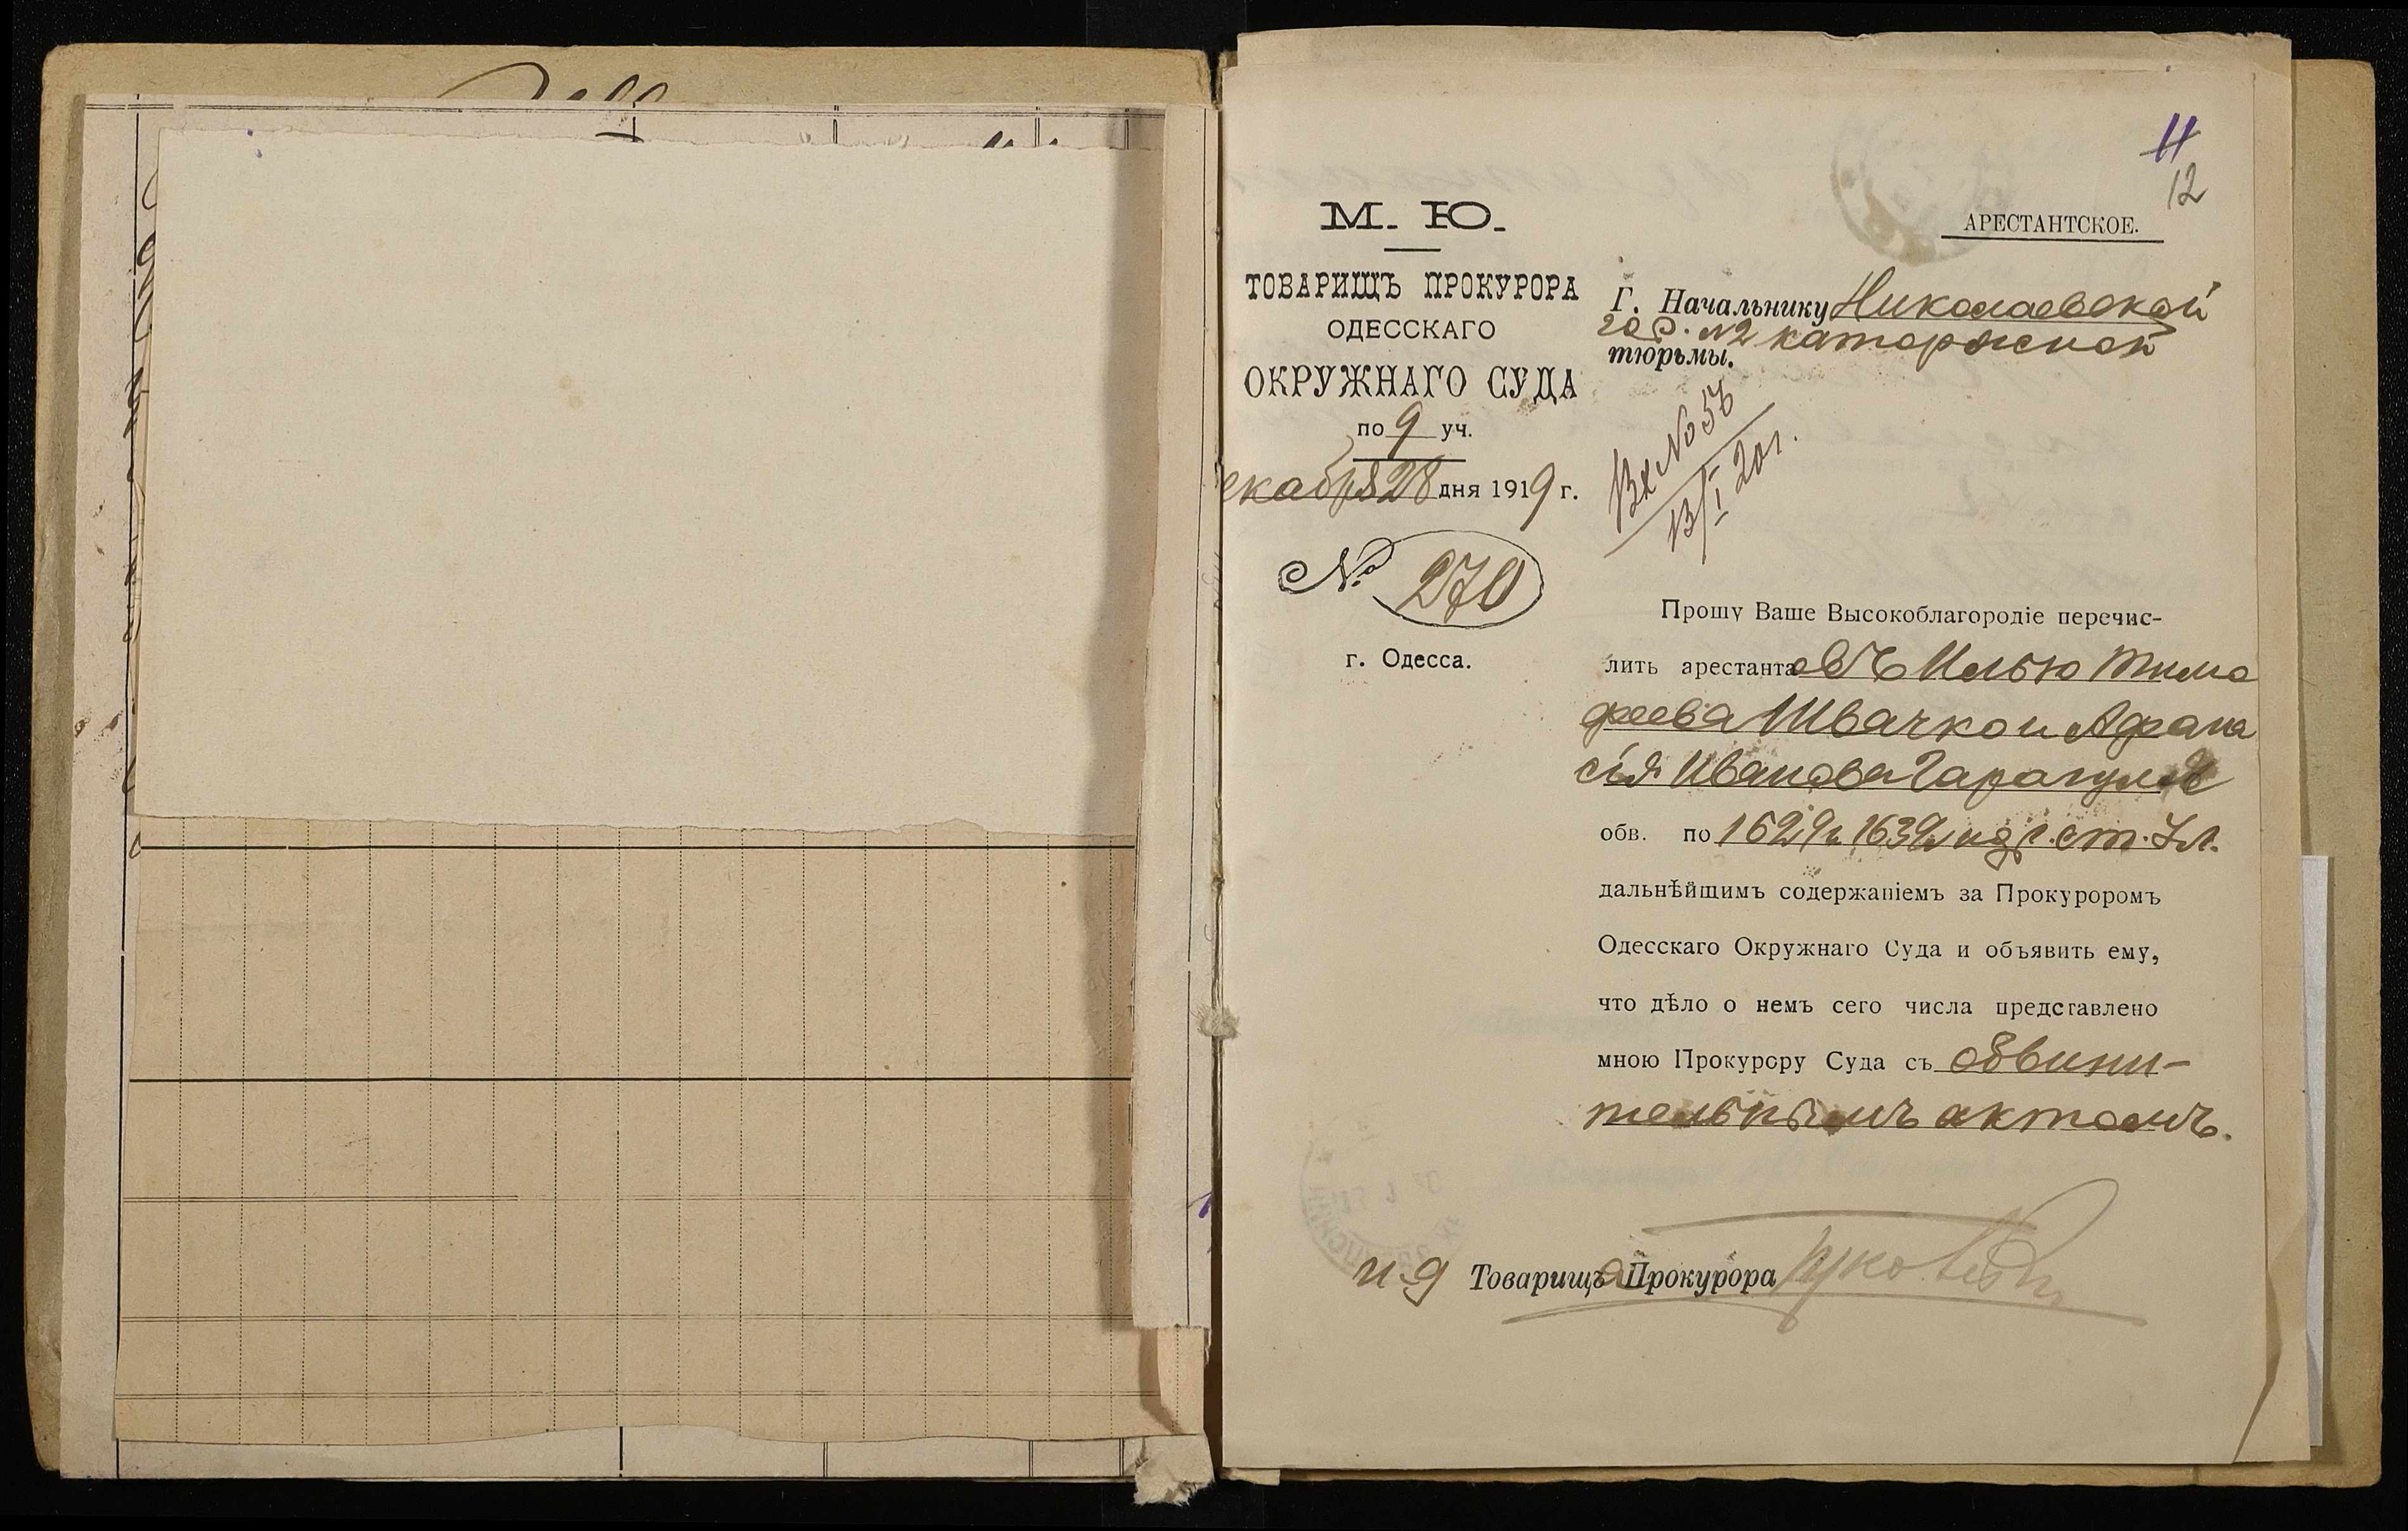 11
12
М. Ю.
АРЕСТАНТСКОЕ.
ТОВАРИЩЪ ПРОКУРОРА
ОДЕССКАГО
ОКРУЖНАГО СУДА
по 9 уч.
екабря 28 дня 1919 г.
№ 270
г. Одесса.
Г. Начальнику Николаевской
гос. №2 каторжной
тюрьмы.
Вх № 56
13/I 20 г.
Прошу Ваше Высокоблагородіе перечис-
лить арестантовъ Илью Тимо
феева Швачко и Афана
сія Иванова Гарагуля
обв. по 1629 и 1632 и др. ст. Ул.
дальнѣйшимъ содержаніемъ за Прокуроромъ
Одесскаго Окружнаго Суда и объявить ему,
что дѣло о немъ сего числа представлено
мною Прокурору Суда съ обвини-
тельнымъ актомъ.
и д Товарища Прокурора